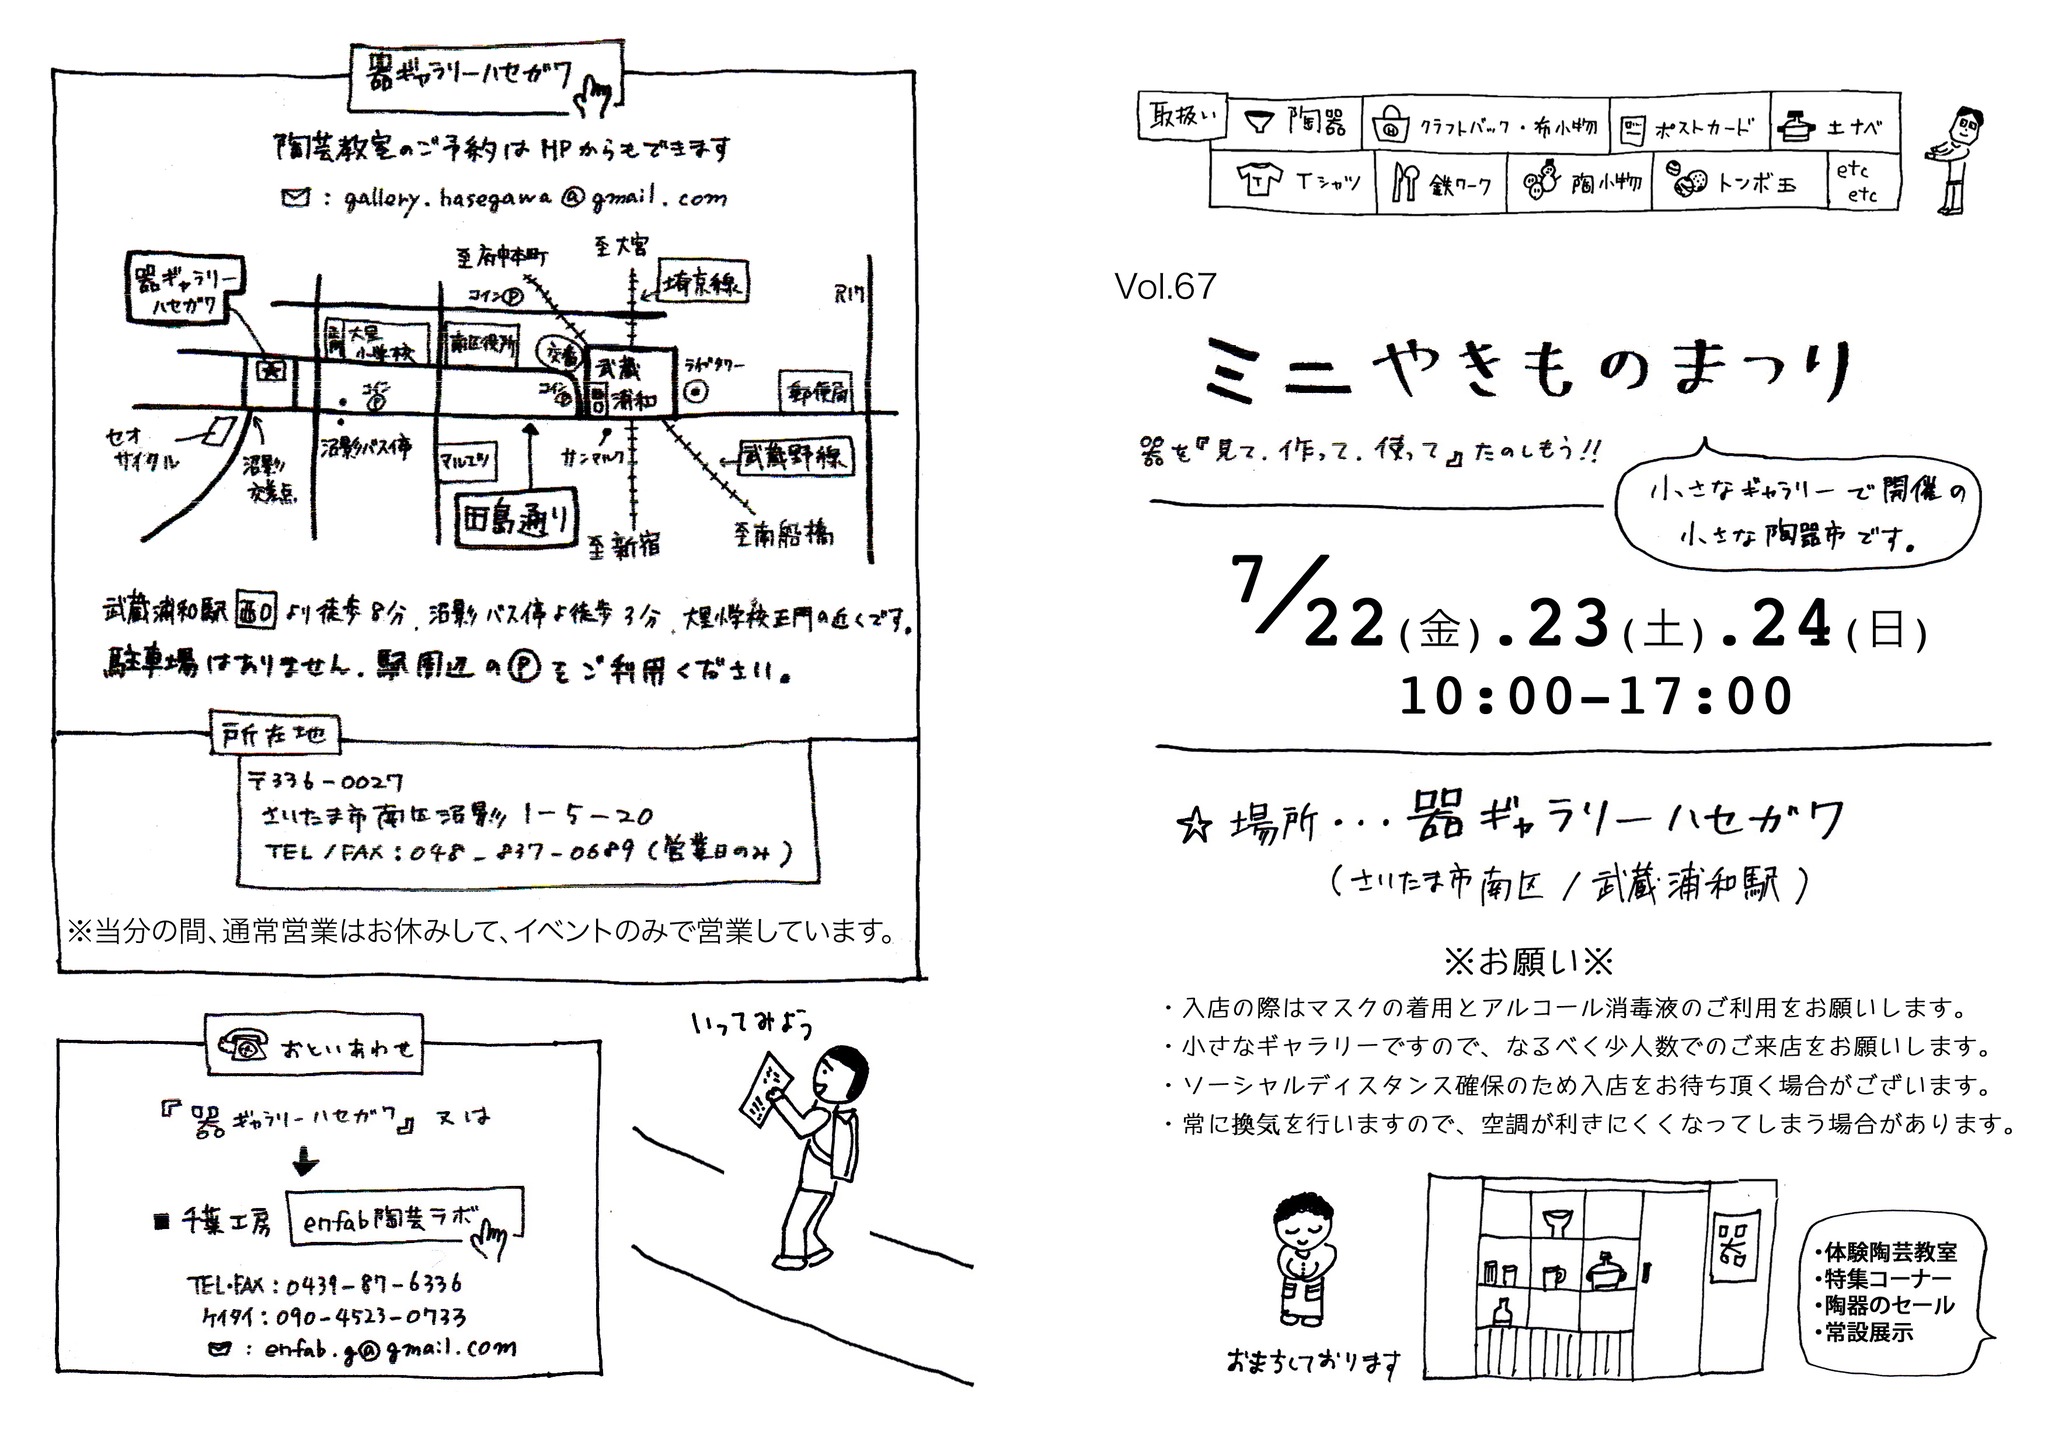 器ギャラリーハセガワ
陶芸教室のご予約はHPからもできます
: gallery.hasegawa@gmail.com
器ギャラリー
ハセガワ
至府中本町
至大宮
埼京線
コインⓅ
R17
正門
大里
小学校
南区役所
交番
武蔵
浦和
西口
ライブタワー
郵便局
コイン
Ⓟ
コイン
Ⓟ
セオ
サイクル
沼影
交差点
沼影バス停
マルエツ
サンマルク
武蔵野線
田島通り
至新宿
至南船橋
武蔵浦和駅 西口 より徒歩8分、沼影バス停より徒歩3分、大里小学校正門の近くです。
駐車場はありません。駅周辺のⓅをご利用ください。
所在地
〒336-0027
さいたま市南区沼影1-5-20
TEL/FAX:048-837-0689(営業日のみ)
※当分の間、通常営業はお休みして、イベントのみで営業しています。
おといあわせ
『器ギャラリーハセガワ』又は
■千葉工房 enfab陶芸ラボ
TEL・FAX:0439-87-6336
ケイタイ:090-4523-0733
: enfab.g@gmail.com
いってみよう
取扱い
陶器
クラフトバック・布小物
ポストカード
土ナベ
Tシャツ
鉄ワーク
陶小物
トンボ玉
etc
etc
Vol.67
ミニやきものまつり
器を『見て．作って．使って』たのしもう!!
小さなギャラリーで開催の
小さな陶器市です。
7/22(金).23(土).24(日)
10:00-17:00
☆場所･･･器ギャラリーハセガワ
(さいたま市南区/武蔵浦和駅)
※お願い※
・入店の際はマスクの着用とアルコール消毒液のご利用をお願いします。
・小さなギャラリーですので、なるべく少人数でのご来店をお願いします。
・ソーシャルディスタンス確保のため入店をお待ち頂く場合がございます。
・常に換気を行いますので、空調が利きにくくなってしまう場合があります。
おまちしております
器
・体験陶芸教室
・特集コーナー
・陶器のセール
・常設展示